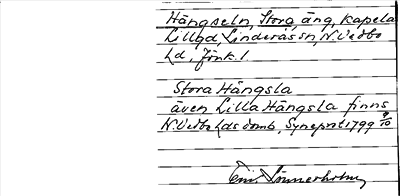 Hängseln, Stora, äng, Kapela
Lillgd, Linderås sn, N. Vedbo
hd, Jönk. l.
Stora Hängsla
även Lilla Hängsla finns
N. Vedbo hds domb, Syneprot 1799 9/10